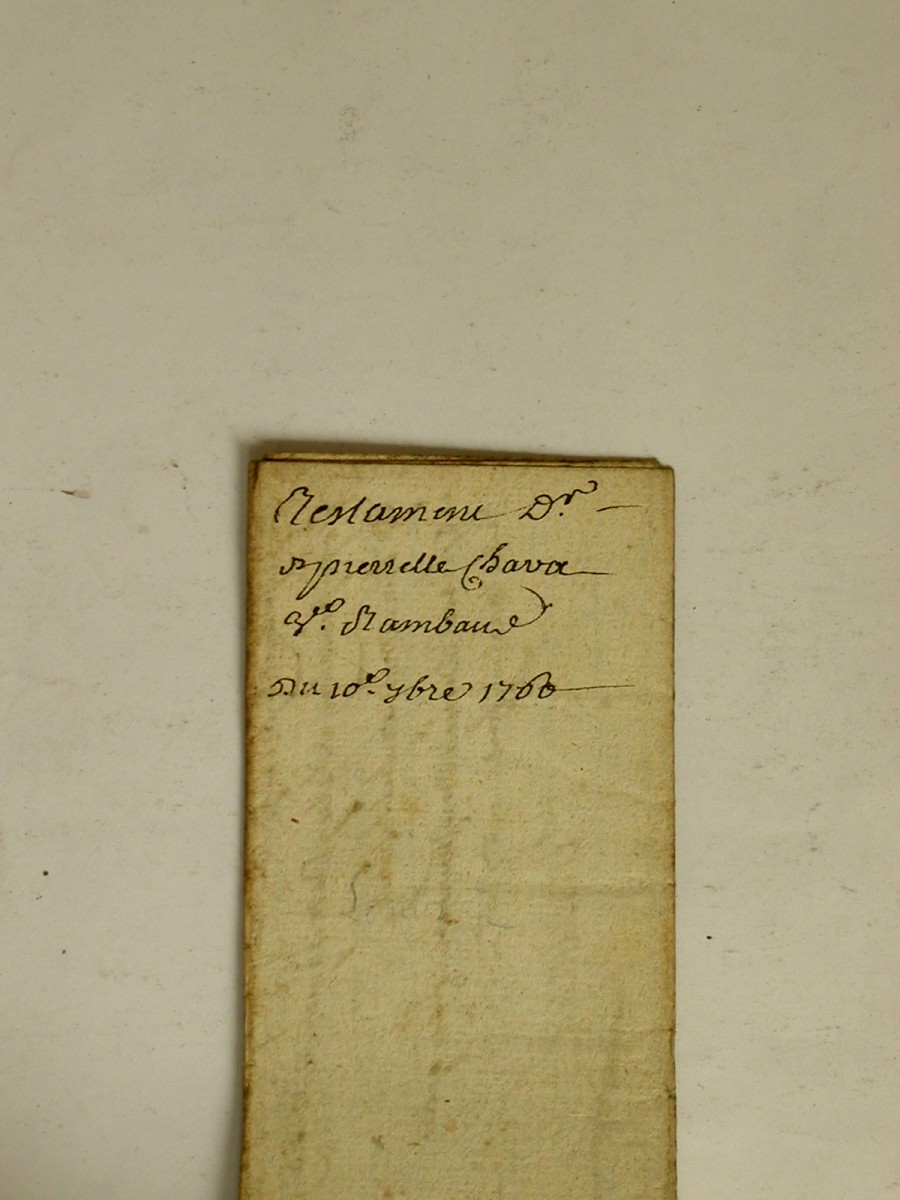 Testament Dr
pierrelle Chava
Ve. Rambaud
Du 10e. 7bre 1766